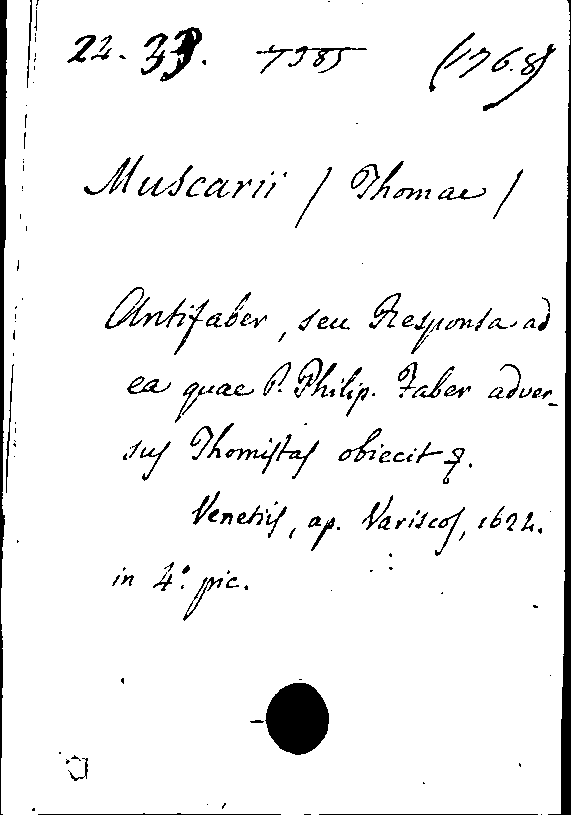 22. 33. 7385 (176.8)
Muscarii / Thomae /
Antifaber, seu Responsa ad
ea quae P. Philip. Faber adver-
sus Thomistas obiecit &.
Venetiis, ap. Variscos, 1622.
in 4.° pic.